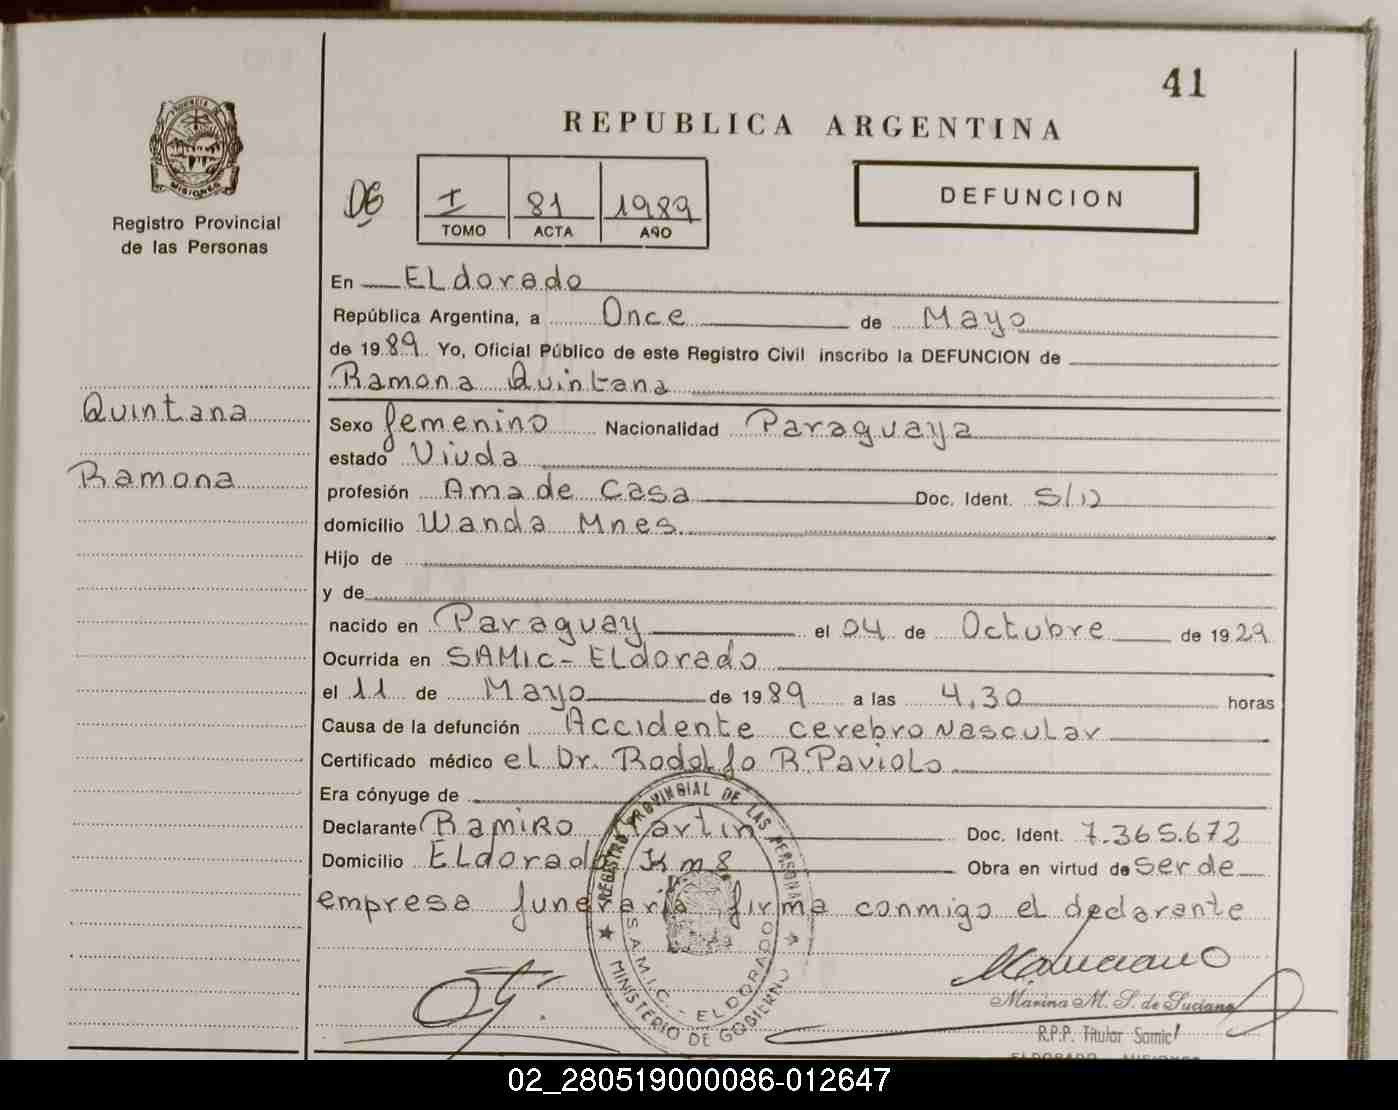 41
REPUBLICA ARGENTINA
PROVINCIA DE
MISIONES
Registro Provincial
de las Personas
I 81 1989
TOMO ACTA AÑO
DEFUNCION
En ELdorado
República Argentina, a Once de Mayo
de 1989 Yo, Oficial Público de este Registro Civil inscribo la DEFUNCION de
Ramona Quintana
Quintana
Ramona
Sexo femenino Nacionalidad Paraguaya
estado Viuda
profesión Ama de Casa Doc. Ident. S/D
domicilio Wanda Mnes.
Hijo de
y de
nacido en Paraguay el 04 de Octubre de 1929
Ocurrida en SAMIC - ELdorado
el 11 de Mayo de 1989 a las 4,30 horas
Causa de la defunción Accidente cerebro vascular
Certificado médico el Dr. Rodolfo R. Paviolo
Era cónyuge de
Declarante Ramiro Martin Doc. Ident. 7.365.672
Domicilio ELdorado Km 8 Obra en virtud de ser de
empresa funeraria firma conmigo el declarante
REGISTRO PROVINCIAL DE LAS PERSONAS
S.A.M.I.C. - ELDORADO
MINISTERIO DE GOBIERNO
Marina M. S. de Luciano
R.P.P. Titular Samic
ELDORADO MISIONES
02_280519000086-012647